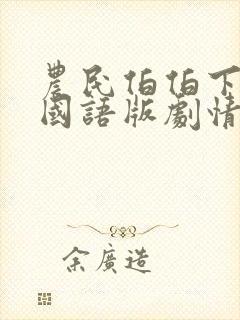 農民伯伯下
國語版劇情
余廣造